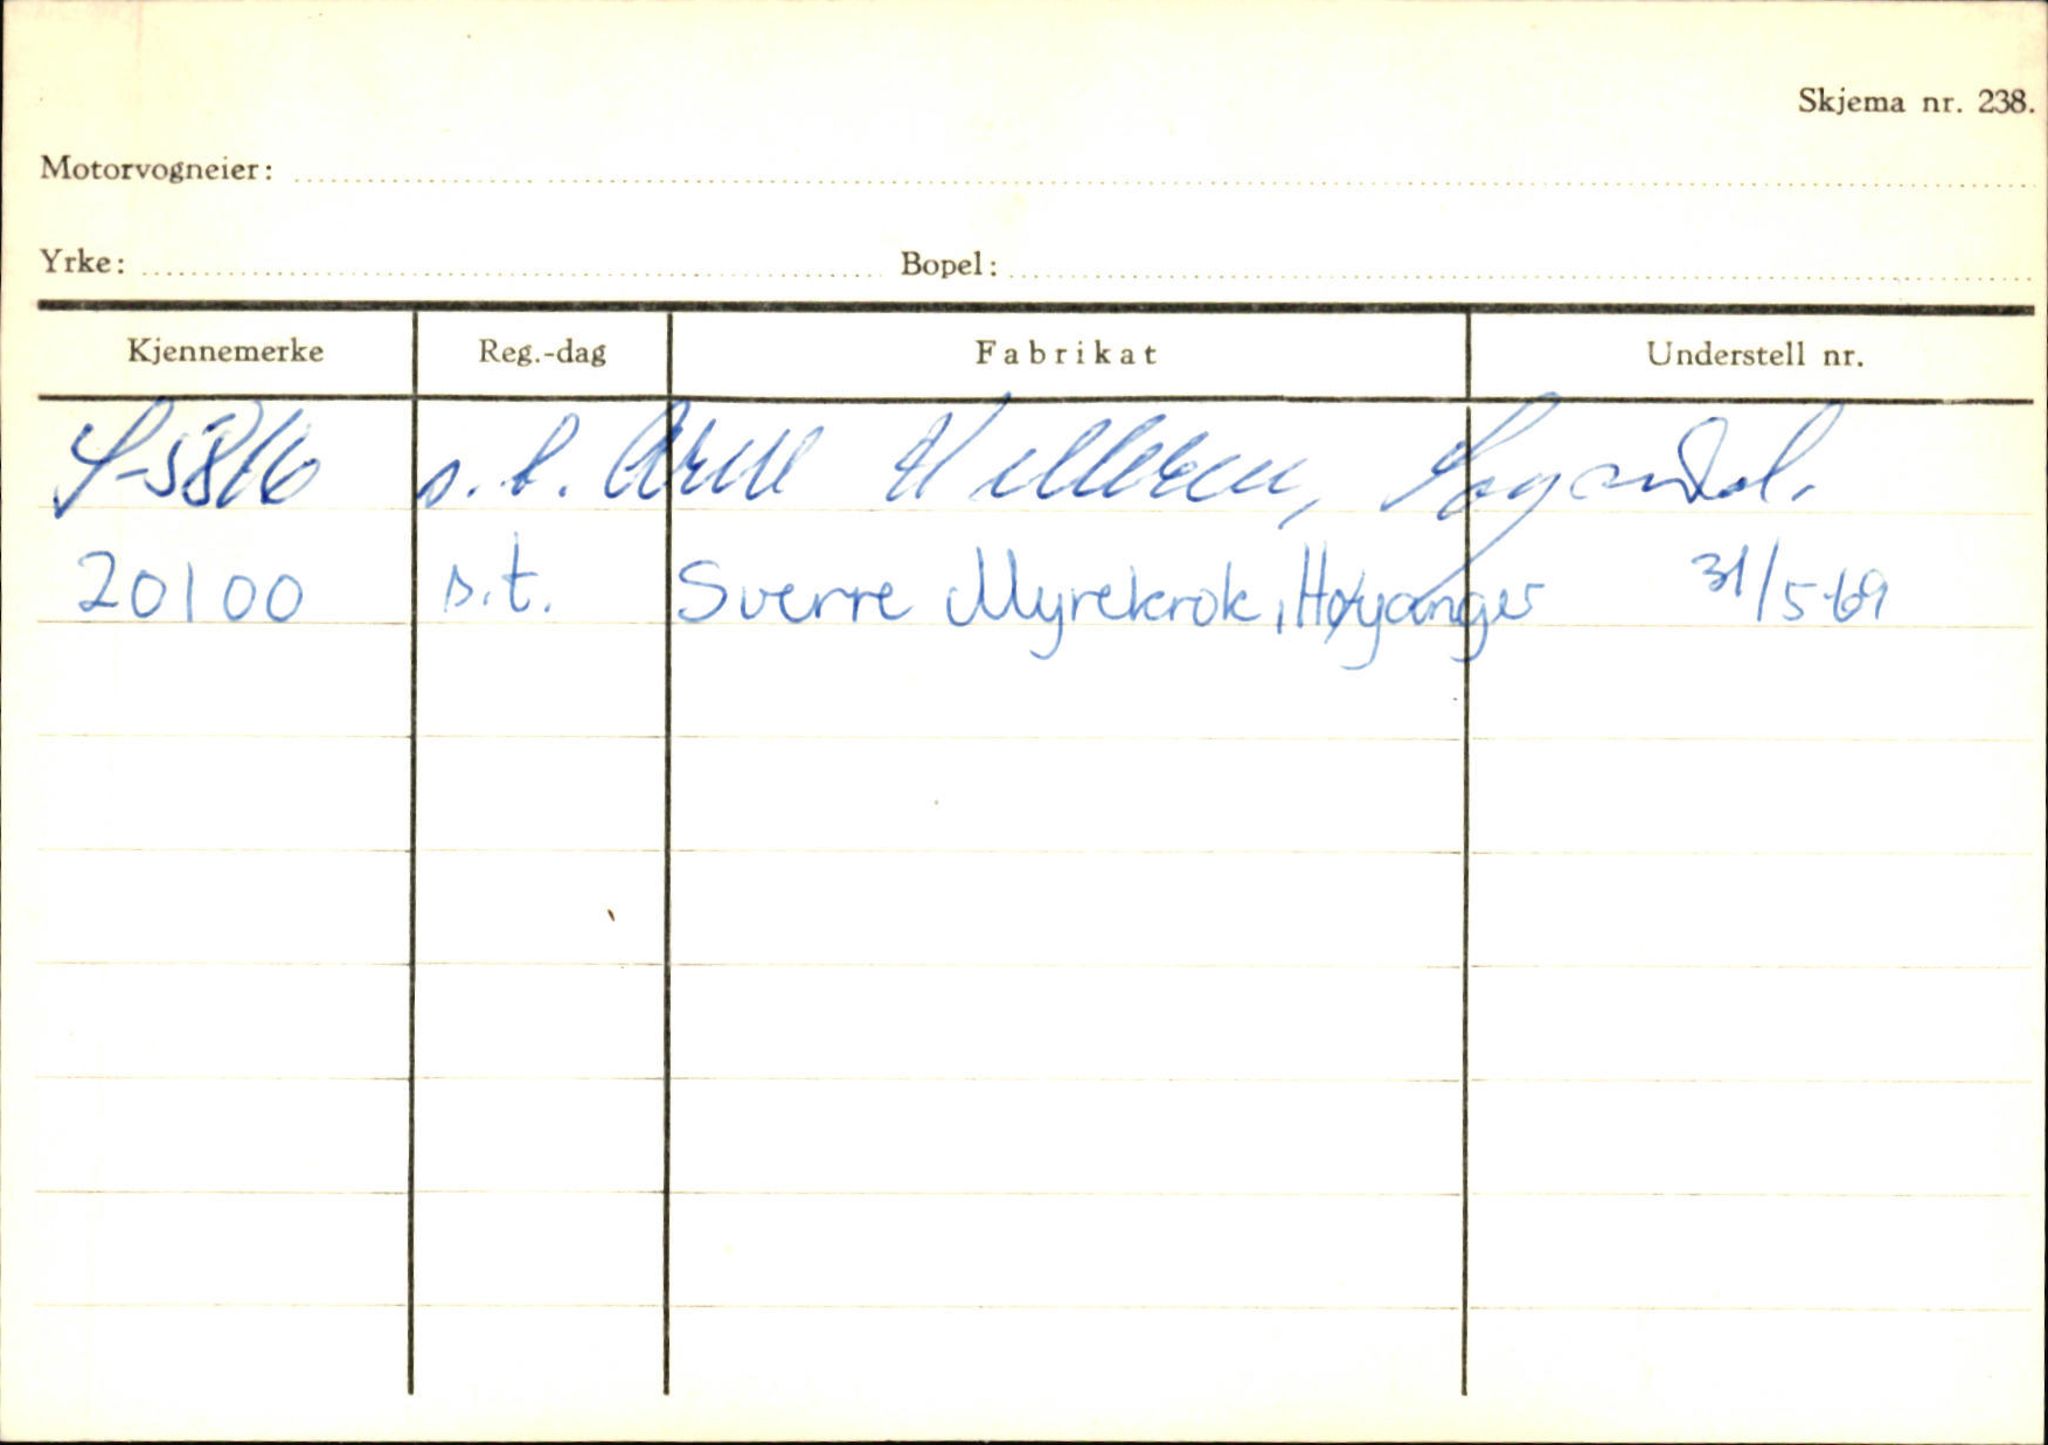 Skjema nr. 238.
Motorvogneier:
Yrke: Bopel:
Kjennemerke Reg.-dag Fabrikat Understell nr.
S-5816 s.t. Arne Hilleren, Sogndal.
20100 s.t. Sverre Myrekrok, Høyanger 31/5-69